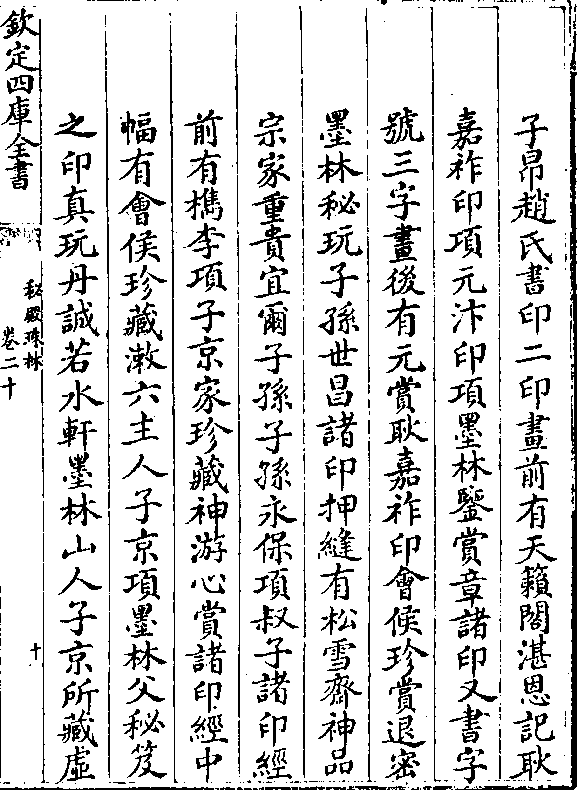 子昂趙氏書印二印畫前有天籟閣湛恩記耿
嘉祚印項元汴印項墨林鑒賞章諸印又書字
號三字畫後有元賞耿嘉祚印會侯珍賞退密
墨林秘玩子孫世昌諸印押縫有松雪齋神品
宗家重貴宜爾子孫子孫永保項叔子諸印經
前有檇李項子京家珍藏神游心賞諸印經中
幅有會侯珍藏漱六主人子京項墨林父秘笈
之印真玩丹誠若水軒墨林山人子京所藏虛
欽定四庫全書
秘殿珠林
卷二十
十